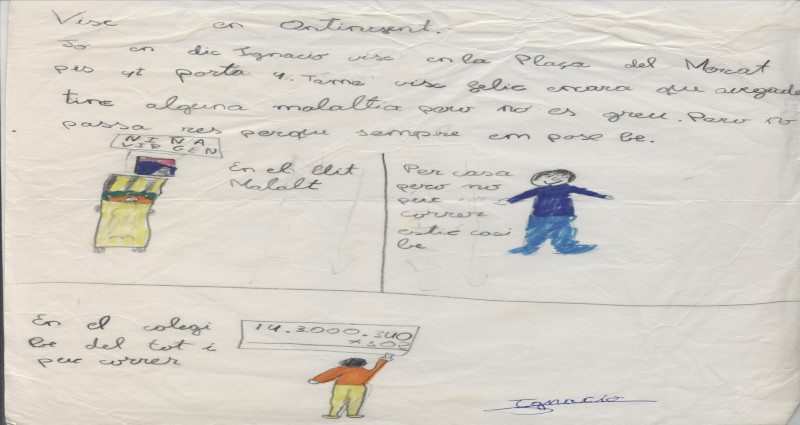 Visc en Ontinyent.
Jo en dic Ignacio visc en la Plaça del Mercat
pis 4t porta 4. Tame visc feliç encara que avegade
tinc alguna malaltia pero no es greu. Pero no
passa res perque sempre em pose be.
NINA
VIRGEN
En el llit
Malalt
Per casa
pero no
puc
correr
estic casi
be
En el colegi
be del tot i
puc correr
14.3000.340
x 502
Ignacio